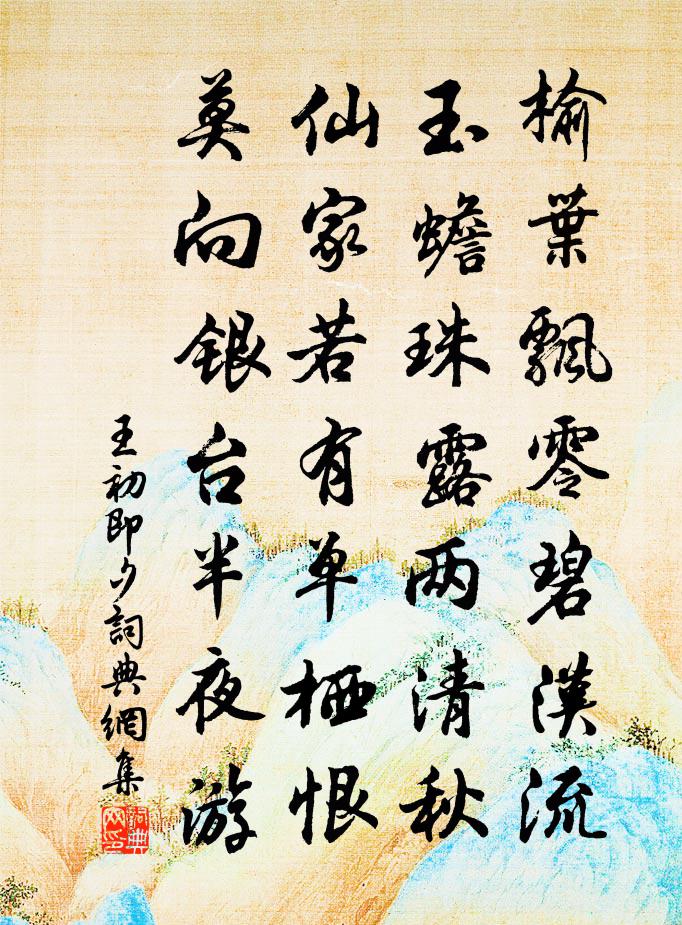 榆葉飄零碧漢流
玉蟾珠露两清秋
仙家若有单栖恨
莫向银台半夜游
王初即夕詞典網集
詞典网印